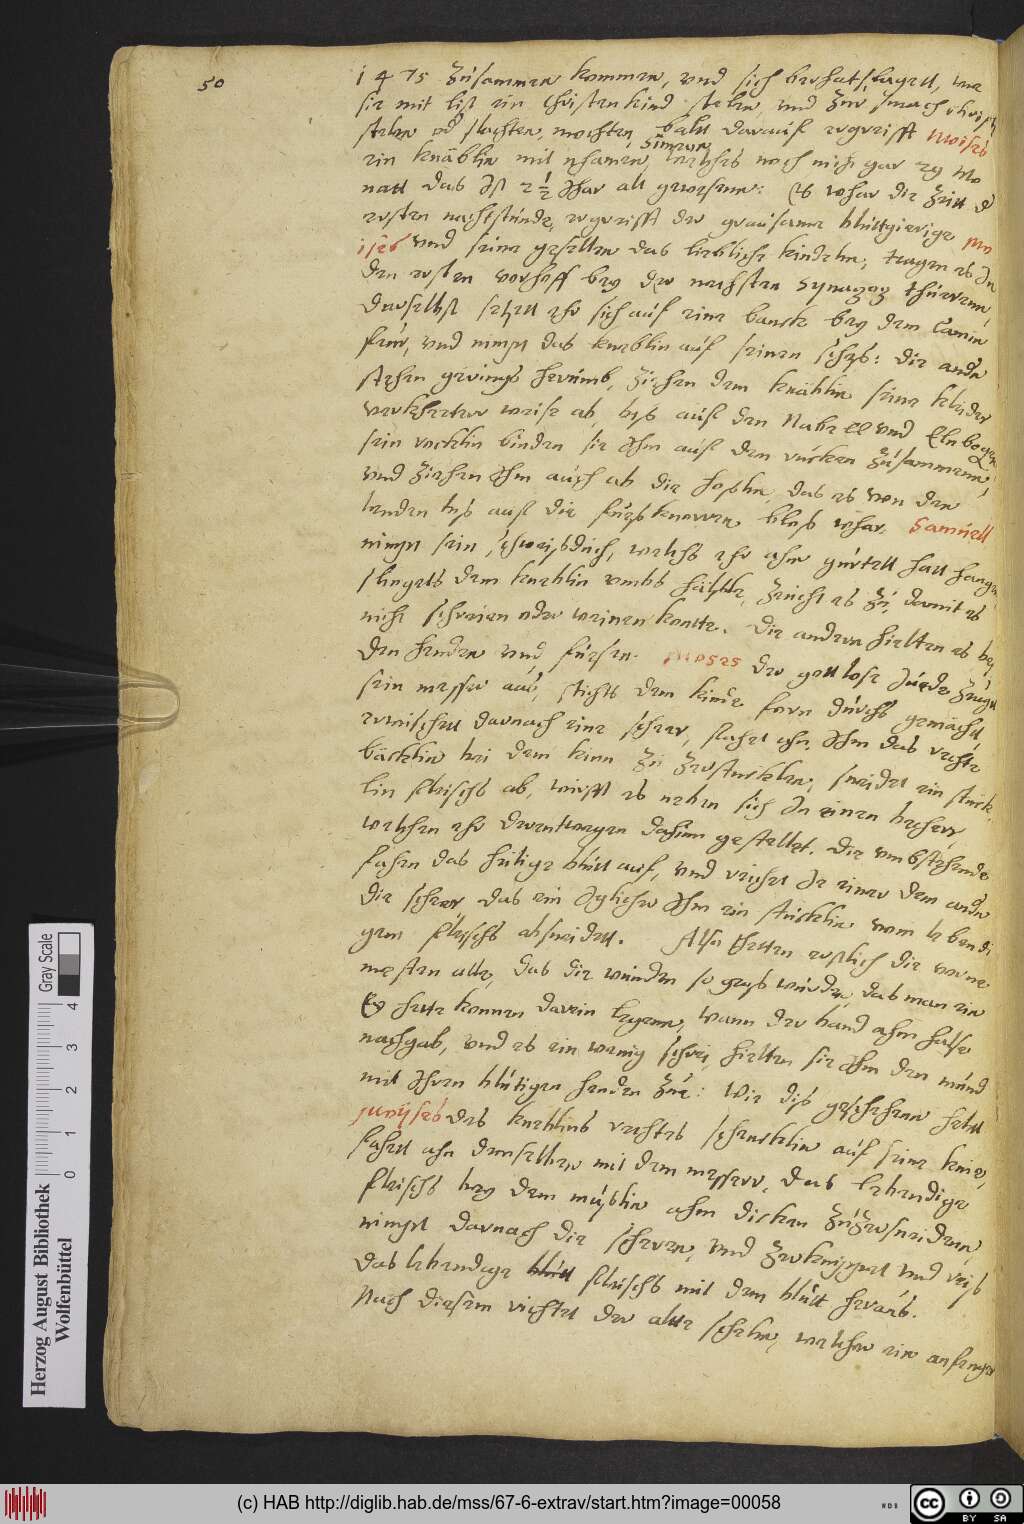 50
1475 zusammen kommen, und sich berhatslagett, wie
sie mit list ein Christen kind stelen, und zur smach Christi
stelen od slachten mochten, baltt darauf ergreifft Moises
simeon
ein knäblin mit nhamen, welches noch nicht gar 29 Mo
natt das Ist 2 1/2 Jhar alt gewesenn: Es whar die Zeitt d
ersten nachtstunde, ergreifft der grausame bluttgierige Mo
ises und seine gesellen das liebliche kindelin, tragen es In
den ersten vorhoff bey der nechsten Synagog thurenn,
daruselbst setzett ehr sich auf eine banck bey dem Camin
feur, und nimpt das kneblin auf seinen schos: die andn
stehen geringes herumb, ziehen dem knäblin seine kleider
verkehrter weise ab, bis auf den Nabell und Elnbogen
sein rocklin binden sie Ihm auf den rucken zusammenn,
und ziehen Ihm auch ab die hoslin, das es von den
lenden bis auf die fus knorren blos whar, Samuell
nimpt sein schweisduch, welchs ehr ahm gurtell hatt hangen
slingets dem kneblin umbs hälslin, zeucht es zu, damit es
nicht schreien oder weinen konte. Die andern hielten es bey
den henden und fuesen. Moses der gottlose Juede zeugt
sein messer aus, sticht dem kinde forn durchs gemächt
erwischett darnach eine scheer, fahet ahn Ihm das rechte
bäcklin bei dem kinn zu zerstuckelen, sneidet ein stuck
lin fleischs ab, wirfft es neben sich In einen becher,
welchen ehr derentwegen dahinn gestellet. Die umbstehende
fahen das heilige blutt auf, und reichet Je einer dem andn
die scheer das ein Iglicher Ihm ein stucklin vom lebendi
gem fleischs absneidett. Also thetten erstlich die vorne
mesten alle, das die wunden so gros wurde, das man ein
Ey hette konnen darein legenn, wann der band ahm halse
nachgab, und es ein wenig schrei, hielten sie Ihm den mund
mit Ihren blutigen henden zue: Wie dis geschehenn hebtt
Moyses das kneblins rechtes schencklin auf seine knie,
fahett ahn demselben mit dem messerr, das lebendige
fleischs bey dem muslin ahm dicken zuzersneidenn
nimpt darnach die scheren, und zerkneippett und reis
das lebendige blutt fleischs mit dem blutt heraus.
Nach diesem richtet der alte schelm, welcher ein anfenger
Herzog August Bibliothek
Wolfenbüttel
Gray Scale
0 1 2 3 4
(c) HAB http://diglib.hab.de/mss/67-6-extrav/start.htm?image=00058
WDB
cc BY SA